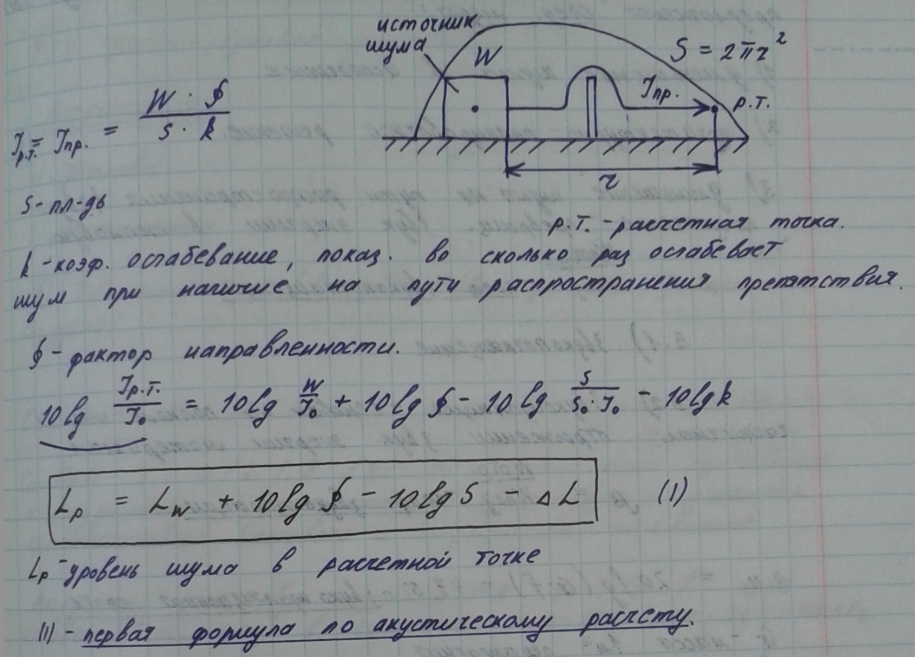 источник
шума
W
S = 2πr²
Jпр.
р.т.
r
Jр.т. = Jпр. = W · ϕ / S · k
S - пл-дь
р.т. - расчетная точка.
k - коэф. ослабевание, показ. во сколько раз ослабевает
шум при наличие на пути распространения препятствия.
ϕ - фактор направленности.
10lg Jр.т./J₀ = 10lg W/J₀ + 10lg ϕ - 10lg S/S₀·J₀ - 10lgk
Lр = Lw + 10lg ϕ - 10lg S - ΔL (1)
Lр - уровень шума в расчетной точке
(1) - первая формула по акустическому расчету.